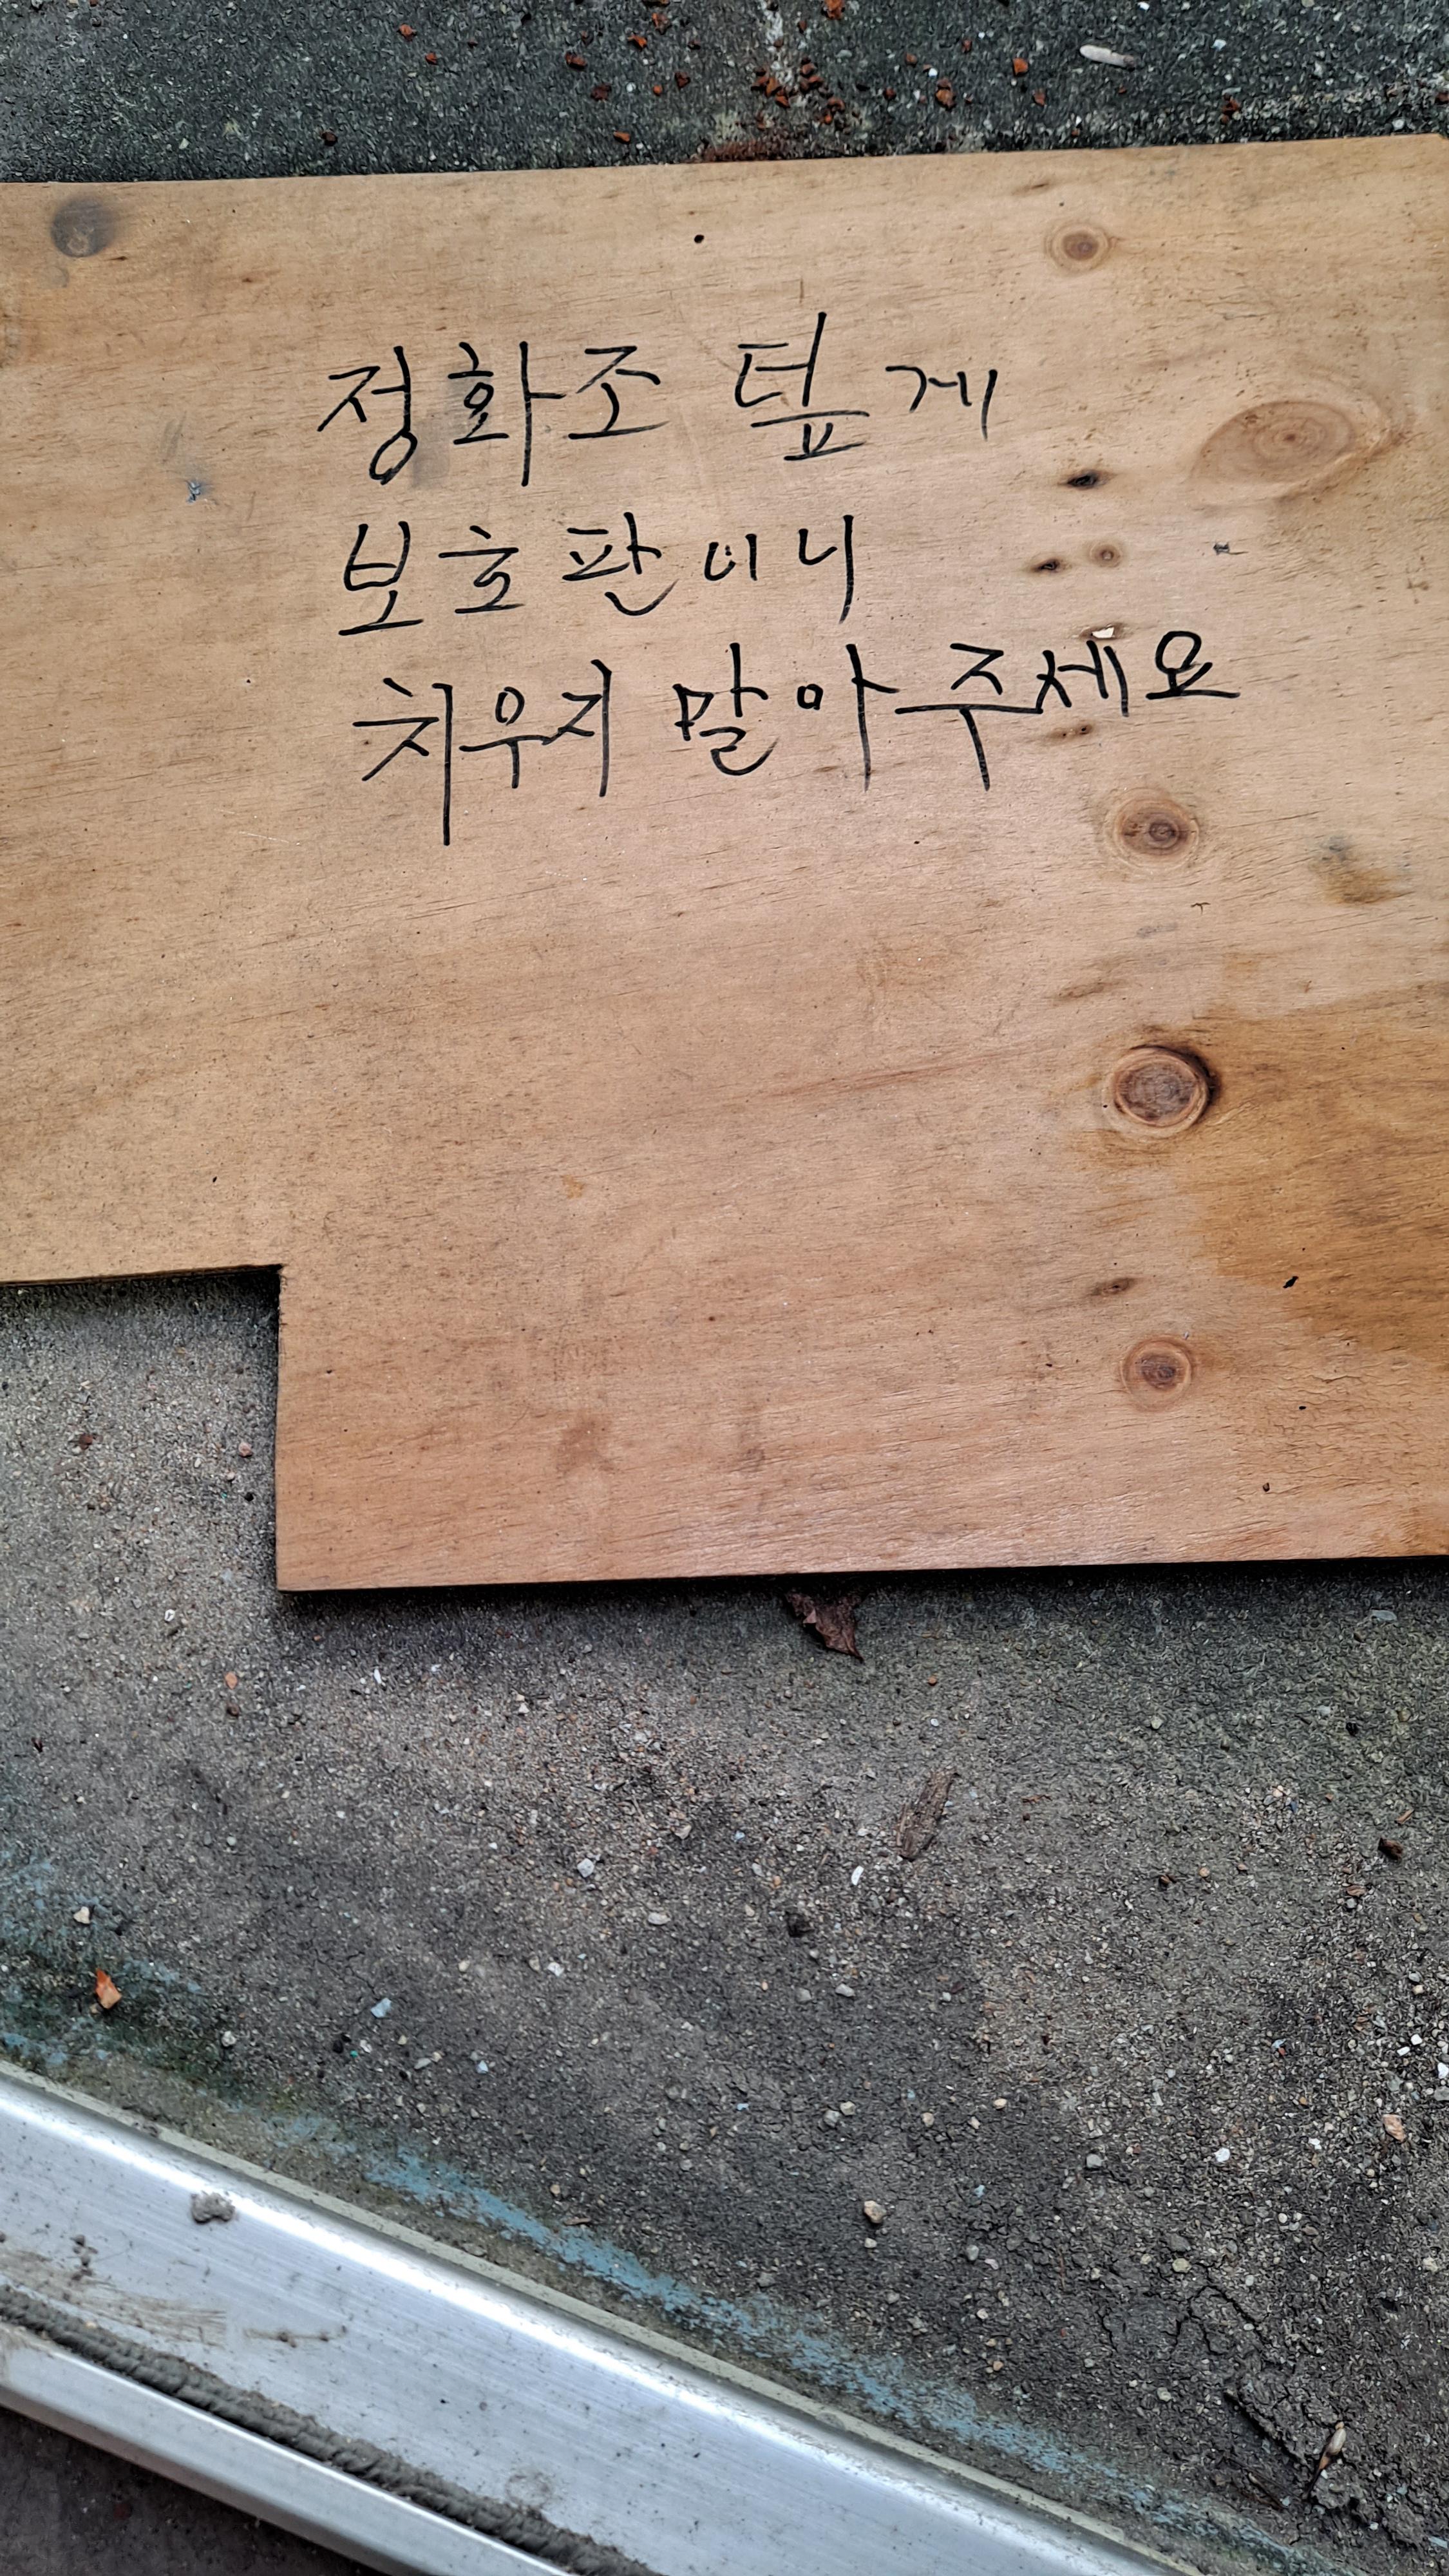 정화조 덮게
보호판이니
치우지 말아주세요